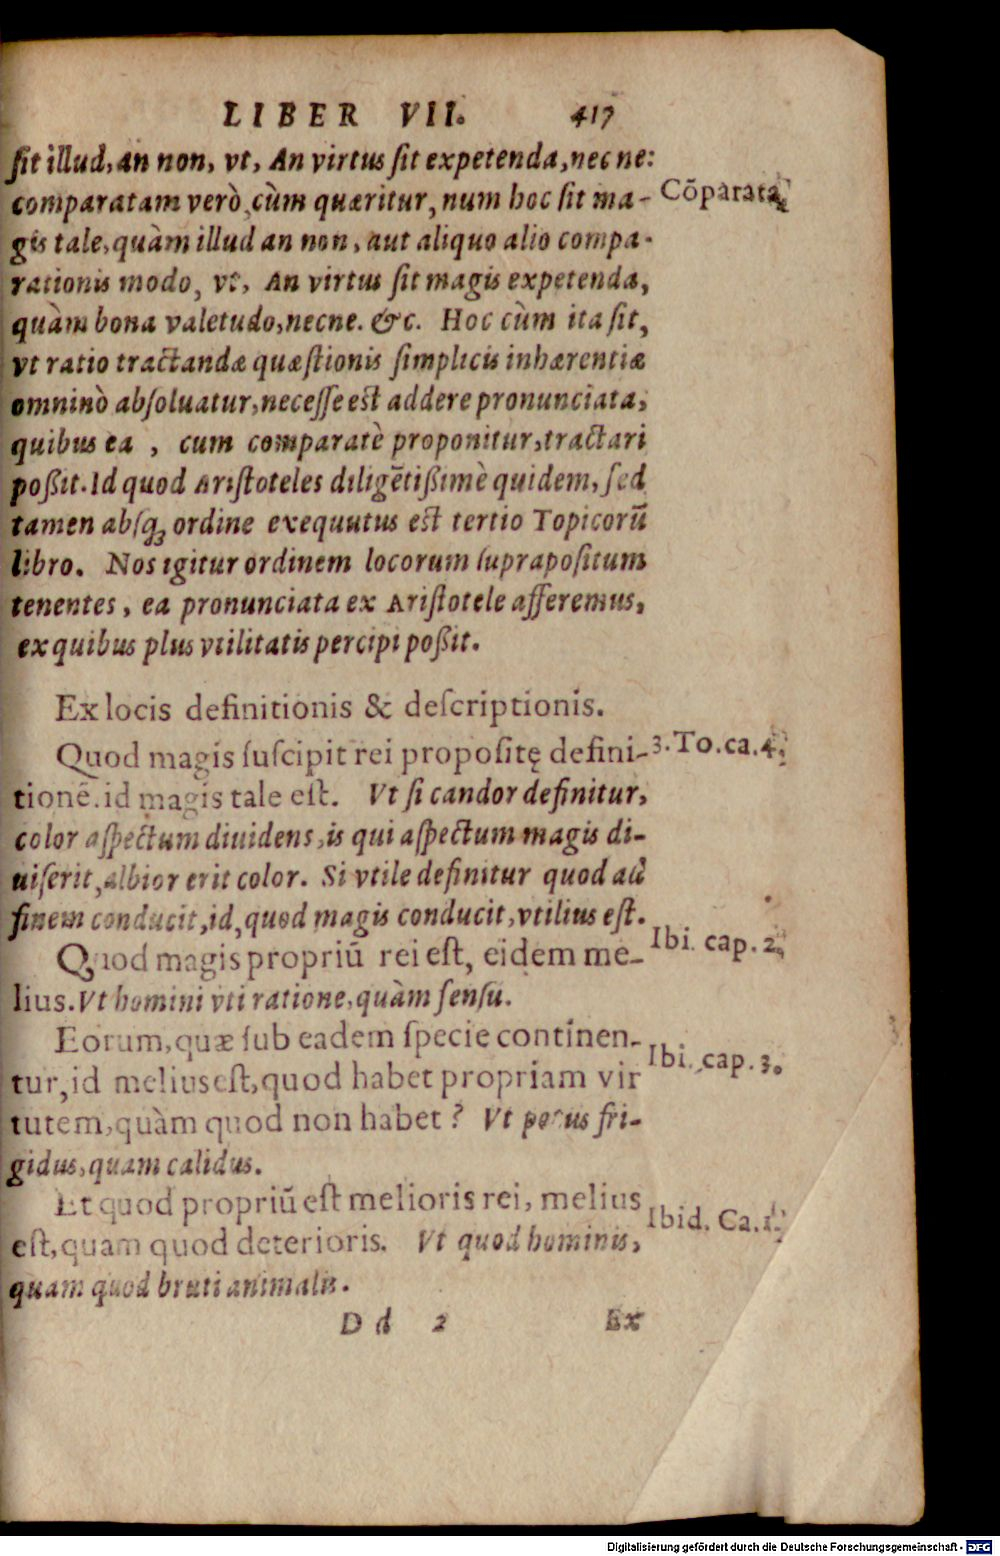 LIBER VII. 417
ſit illud, an non, vt, An virtus ſit expetenda, nec ne:
comparatam verò, cùm quæritur, num hoc ſit ma-
Cōparata.
gis tale, quàm illud an non, aut aliquo alio compa-
rationis modo, vt, An virtus ſit magis expetenda,
quàm bona valetudo, necne. &c. Hoc cùm ita ſit,
vt ratio tractandæ quæſtionis ſimplicis inhærentiæ
omninò abſoluatur, neceſſe eſt addere pronunciata,
quibus ea, cum comparatè proponitur, tractari
poßit. Id quod Ariſtoteles diligētißimè quidem, ſed
tamen abſq; ordine exequutus eſt tertio Topicorū
libro. Nos igitur ordinem locorum ſuprapoſitum
tenentes, ea pronunciata ex Ariſtotele afferemus,
ex quibus plus vtilitatis percipi poßit.
Ex locis definitionis & deſcriptionis.
Quod magis ſuſcipit rei propoſitę defini-
3. To. ca. 4.
tionē. id magis tale eſt. Vt ſi candor definitur,
color aſpectum diuidens, is qui aſpectum magis di-
uiſerit, albior erit color. Si vtile definitur quod ad
finem conducit, id, quod magis conducit, vtilius eſt.
Quod magis propriū rei eſt, eidem me-
Ibi. cap. 2.
lius. Vt homini vti ratione, quàm ſenſu.
Eorum, quæ ſub eadem ſpecie continen-
Ibi. cap. 3.
tur, id melius eſt, quod habet propriam vir
tutem, quàm quod non habet? Vt pecus fri-
gidus, quam calidus.
Et quod propriū eſt melioris rei, melius
Ibid. Ca. 1.
eſt, quam quod deterioris. Vt quod hominis,
quam quod bruti animalis.
D d 2 Ex
Digitalisierung gefördert durch die Deutsche Forschungsgemeinschaft - DFG